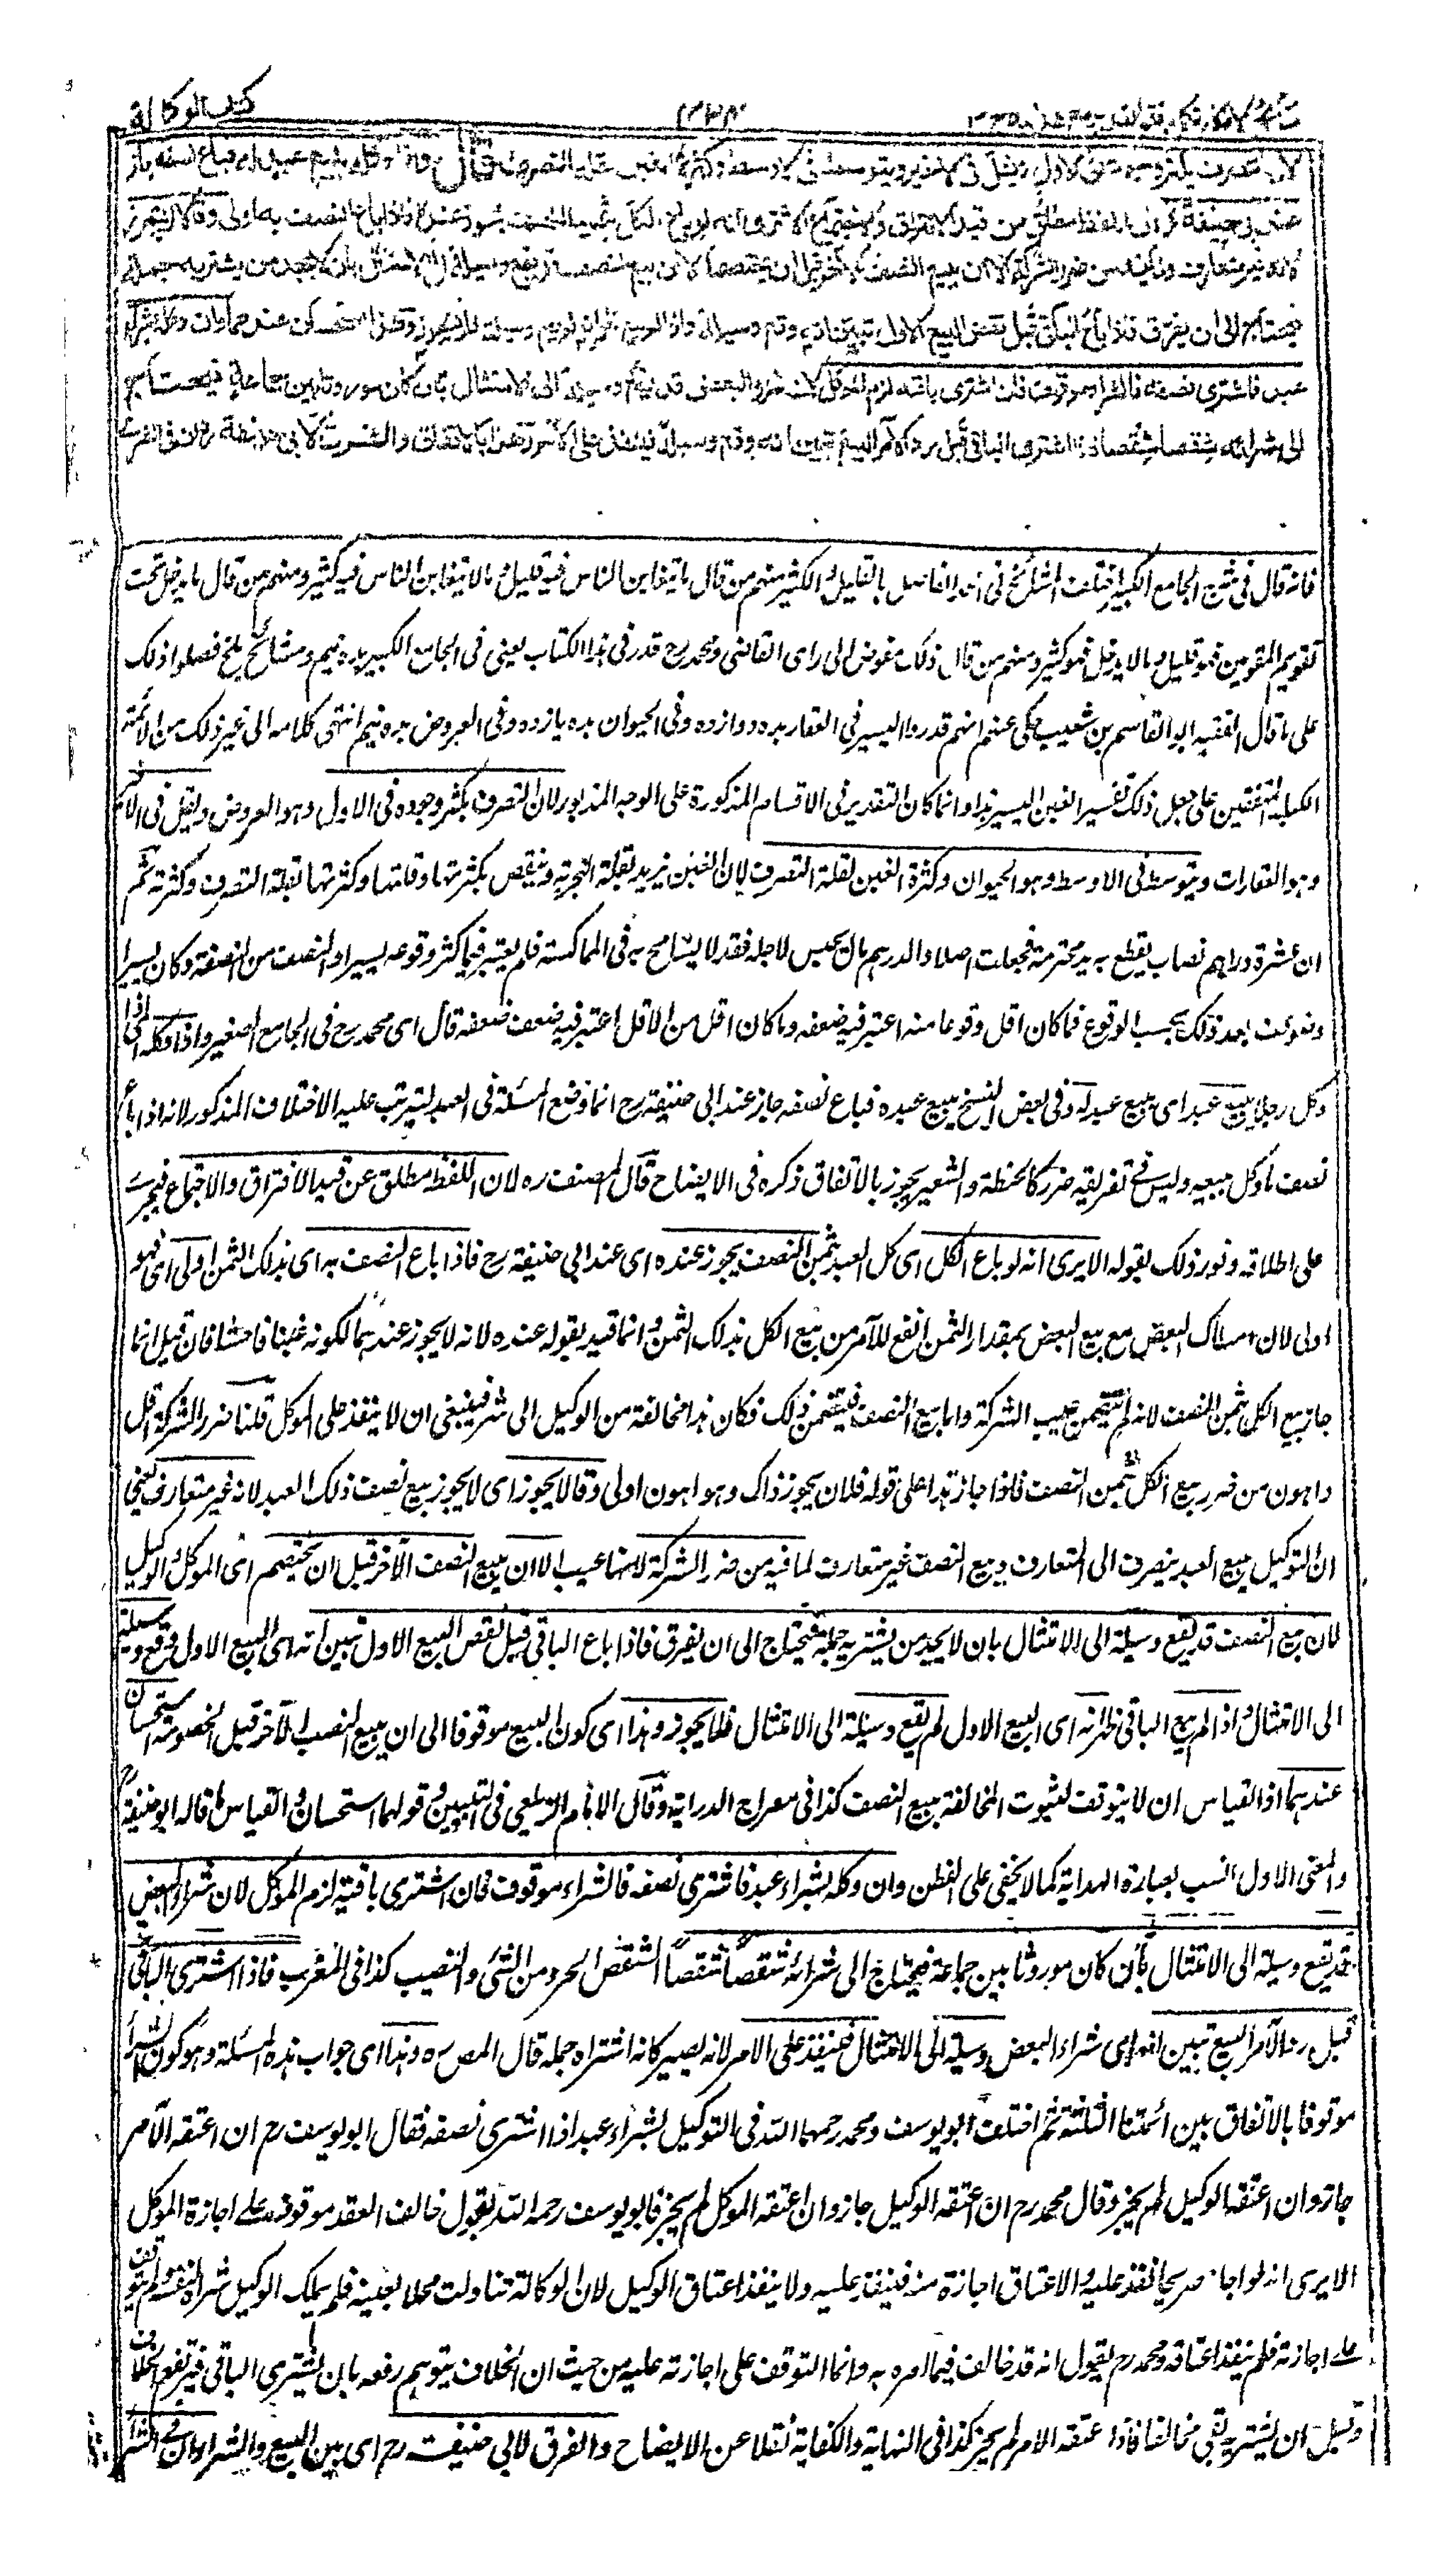 كتاب الوكالة
لان التصرف يكثر وجوده فى الاول ويقل فى الاخير ويتوسط فى الاوسط وكثرة الغبن لقلة التصرف قال واذا وكله ببيع عبد له فباع نصفه جاز
عند ابى حنيفة لان اللفظ مطلق عن قيد الافتراق والاجتماع الا ترى انه لو باع الكل بثمن النصف يجوز عنده فاذا باع النصف به اولى وقالا لا يجوز
لانه غير متعارف ولما فيه من ضرر الشركة الا ان يبيع النصف الآخر قبل ان يختصما لان بيع النصف قد يقع وسيلة الى الامتثال بان لا يجد من يشتريه جملة
فيحتاج الى ان يفرق فاذا باع الباقى قبل نقض البيع الاول تبين انه وقع وسيلة واذا لم يبع ظهر انه لم يقع وسيلة فلا يجوز وهذا استحسان عندهما وان وكله بشراء
عبد فاشترى نصفه فالشراء موقوف فان اشترى باقيه لزم الموكل لان شراء البعض قد يقع وسيلة الى الامتثال بان كان موروثا بين جماعة فيحتاج
الى شرائه شقصا شقصا فاذا اشترى الباقى قبل رد الآمر البيع تبين انه وقع وسيلة فينفذ على الآمر وهذا بالاتفاق والفرق لابى حنيفة ان فى الشراء
فانه قال فى شرح الجامع الكبير اختلفت المشائخ فى الحد الفاصل بالقليل و الكثير منهم من قال ما يتغابن الناس فيه قليل و ما لا يتغابن الناس فيه كثير ومنهم من قال ما يدخل تحت
تقويم المقومين فهو قليل وما لا يدخل فهو كثير ومنهم من قال ذلك مفوض الى راى القاضى ومحمد رح قدر فى هذا الكتاب يعنى فى الجامع الكبير بده نيم ومشائخ بلخ فصلوا ذلك
على ما قال الفقيه ابو القاسم بن شعيب حكى عنهم انهم قدروا اليسير فى العقار بده دوازده وفى الحيوان بده يازده وفى العروض بده نيم انتهى كلامه الى غير ذلك من الائمة
الكبار المتفقين على جعل ذلك تفسير الغبن اليسير هذا وانما كان التقدير فى الاقسام المذكورة على الوجه المذبور لان التصرف يكثر وجوده فى الاول وهو العروض ويقل فى الاخير
وهو العقارات ويتوسط فى الاوسط وهو الحيوان وكثرة الغبن لقلة التصرف لان الغبن يزيد لقلة التجربة وينقص بكثرتها وقلتها وكثرتها بقلة التصرف وكثرته ثم
ان عشرة دراهم نصاب يقطع به يد محترمة فجعلت اصلا والدرهم مال يحبس لاجله فقد لا يتسامح به فى المماكسة فلم يعتبر فيما كثر وقوعه يسيرا والنصف من النصفة وكان يسيرا
وضوعف بعد ذلك بحسب الوقوع فما كان اقل وقوعا منه اعتبر فيه ضعفه وما كان اقل من الاقل اعتبر فيه ضعف ضعفه قال اى محمد رح فى الجامع الصغير واذا وكله اى اذا
وكل رجلا ببيع عبد اى ببيع عبد له وفى بعض النسخ ببيع عبده فباع نصفه جاز عند ابى حنيفة رح انما وضع المسئلة فى العبد ليترتب عليه الاختلاف المذكور لانه اذا باع
نصف ما وكل ببيعه وليس فى تفريقه ضرر كالحنطة والشعير يجوز بالاتفاق ذكره فى الايضاح قال المصنف ره لان اللفظ مطلق عن قيد الافتراق والاجتماع فيجرى
على اطلاقه ونور ذلك بقوله الا يرى انه لو باع الكل اى كل العبد بثمن النصف يجوز عنده اى عند ابى حنيفة رح فاذا باع النصف به اى بذلك الثمن اولى اى فهو
اولى لان امساك البعض مع بيع البعض بمقدار الثمن انفع للآمر من بيع الكل بذلك الثمن و انما قيد بقوله عنده لانه لا يجوز عندهما لكونه غبنا فاحشا فان قيل انما
جاز بيع الكل بثمن النصف لانه لم يتضمن عيب الشركة واما بيع النصف فيتضمن ذلك فكان هذا مخالفة من الوكيل الى شر فينبغى ان لا ينفذ على الموكل قلنا ضرر الشركة اقل
واهون من ضرر بيع الكل بثمن النصف فاذا جاز هذا على قوله فلان يجوز ذاك وهو اهون اولى وقالا لا يجوز اى لا يجوز بيع نصف ذلك العبد لانه غير متعارف يعنى
ان التوكيل ببيع العبد ينصرف الى المتعارف وبيع النصف غير متعارف لما فيه من ضرر الشركة لانها عيب الا ان يبيع النصف الآخر قبل ان يختصم اى الموكل والوكيل
لان بيع النصف قد يقع وسيلة الى الامتثال بان لا يجد من يشتريه جملة فيحتاج الى ان يفرق فاذا باع الباقى قبل نقض البيع الاول تبين انه اى البيع الاول وقع وسيلة
الى الامتثال واذا لم يبع الباقى ظهر انه اى البيع الاول لم يقع وسيلة الى الامتثال فلا يجوز وهذا اى كون البيع موقوفا الى ان يبيع النصف الآخر قبل الخصومة استحسان
عندهما اذ القياس ان لا يتوقف لثبوت المخالفة ببيع النصف كذا فى معراج الدراية وقال الامام الزيلعى فى التبيين وقولهما استحسان والقياس ما قاله ابو حنيفة رح
والمعنى الاول انسب بعبارة الهداية كما لا يخفى على الفطن وان وكله بشراء عبد فاشترى نصفه فالشراء موقوف فان اشترى باقيه لزم الموكل لان شراء البعض
قد يقع وسيلة الى الامتثال بان كان موروثا بين جماعة فيحتاج الى شرائه شقصا شقصا الشقص الجزء من الشئ والنصيب كذا فى المغرب فاذا اشترى الباقى
قبل رد الآمر البيع تبين انه اى شراء البعض وسيلة الى الامتثال فينفذ على الامر لانه يصير كانه اشتراه جملة قال المص ره وهذا اى جواب هذه المسئلة وهو كون الشراء
موقوفا بالاتفاق بين ائمتنا الثلثة ثم اختلف ابو يوسف ومحمد رحمهما الله فى التوكيل بشراء عبد اذا اشترى نصفه فقال ابو يوسف رح ان اعتقه الآمر
جاز وان اعتقه الوكيل لم يجز وقال محمد رح ان اعتقه الوكيل جاز وان اعتقه الموكل لم يجز فابو يوسف رحمه الله يقول خالف العقد موقوف على اجازة الموكل
الا يرى انه لو اجاز صريحا نفذ عليه والاعتاق اجازة منه فينفذ عليه ولا ينفذ اعتاق الوكيل لان الوكالة تناولت محلا بعينه فلم يملك الوكيل شراه لنفسه ولم يتوقف
على اجازته فلم ينفذ اعتاقه ومحمد رح يقول انه قد خالف فيما امره به وانما التوقف على اجازته عليه من حيث ان الخلاف يتوهم رفعه بان يشترى الباقى فيرتفع الخلاف
وقبل ان يشتريه بقى مخالفا فاذا اعتقه الامر لم يجز كذا فى النهاية والكفاية نقلا عن الايضاح والفرق لابى حنيفة رح اى بين البيع والشراء ان فى الشراء